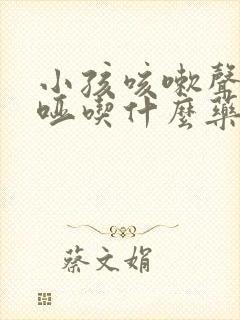 小孩咳嗽聲
啞喫什麼藥
蔡文娟